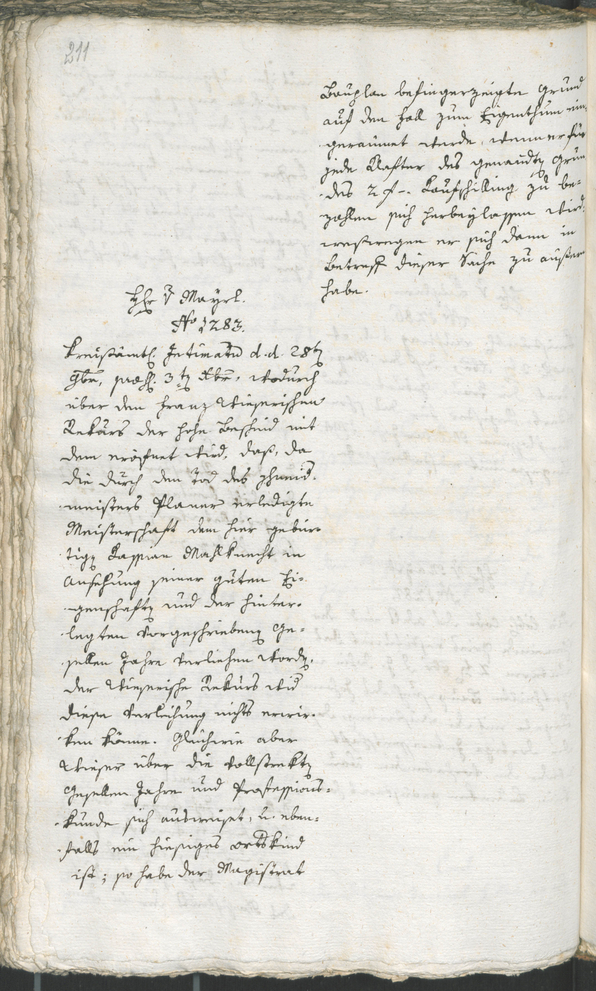 211
Bauplan befingerzeigte Grund
auf den Fall zum Eigenthum ein-
geraumet werde, wenn er für
jede Klafter des genandten Grun-
des 2 f -. Kaufschilling zu be-
zahlen sich herbeylassen wird:
wesswegen er sich dann in
Betreff dieser Sache zu äußern
habe.
H: Hr v Mayrl.
No 1283.
Kreisämtl. Intimatum d. d. 28ten
9ber, praes. 3ten Xber, wodurch
über den Franz Wieserischen
Rekurs der hohe Bescheid mit
dem eröfnet wird, daß, da
die durch den Tod des schmid-
meisters Planer erledigte
Meisterschaft dem hier gebür-
tigen Kassian Mahlknecht in
Ansehung seiner guten Ei-
genschaften und der hinter-
legten vorgeschriebenen Ge-
sellen Jahre verliehen worden,
der Wieserische Rekurs wid
diese Verleihung nichts erwir-
ken könne. Gleichwie aber
Wieser über die vollstrekten
Gesellen Jahre und Professions-
kunde sich ausweiset, u. eben-
falls ein hiesiges Ortskind
ist; so habe der Magistrat